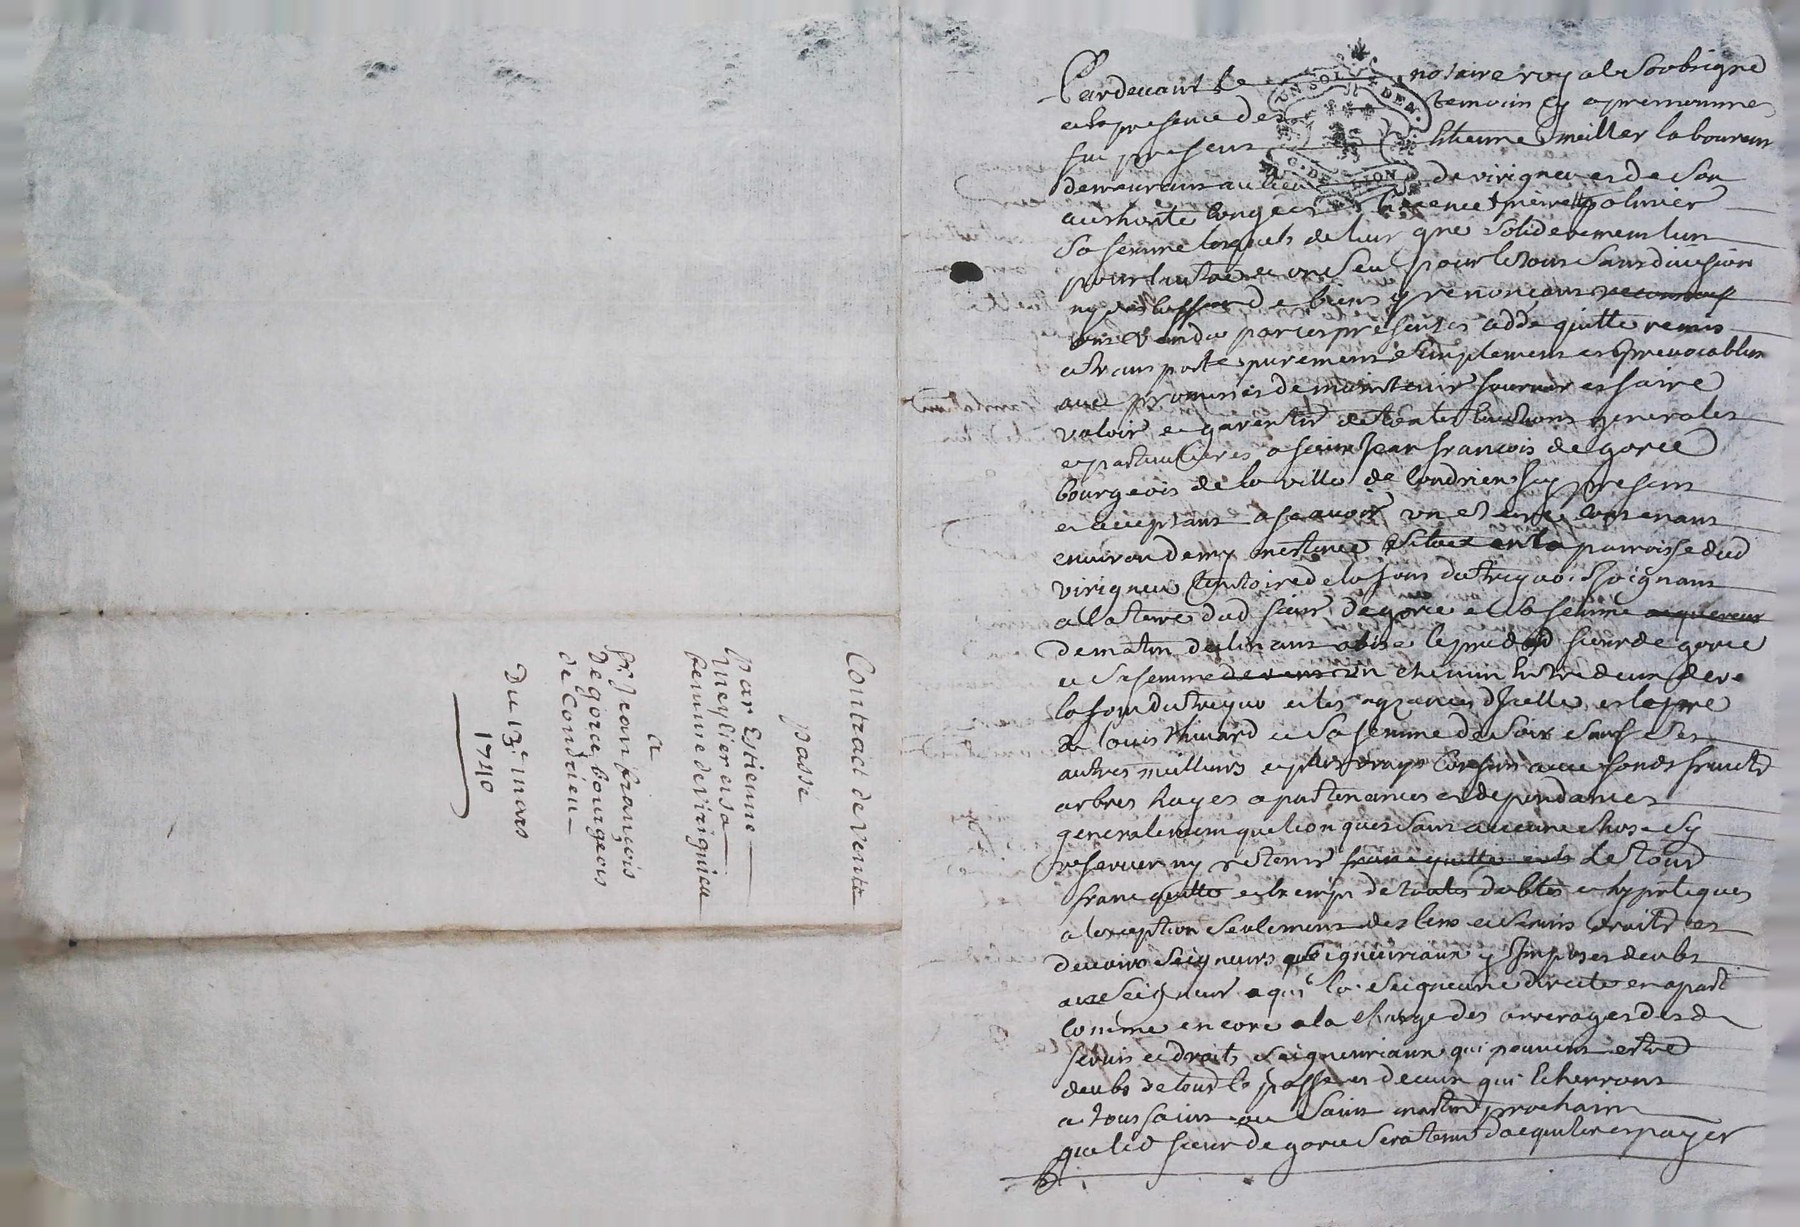 Contract de vente
passé
par Estienne
meylier et sa
femme de virignieu
a
Sr. Jean françois
De gorce bourgeois
de Condrieu
Du 13e mars
1740
Pardevant le notaire royal soubsigné
et la presence des temoins cy apres nommes
fut present Estienne meiller laboureur
demeurant au lieu de virigneu et de son
authorité congé et licence pierrette palinier
sa femme lesquels de leur gré solidairement lun
pour lautre et un seul pour le tout sans division
ny de biens y renonceant
ont vendu par ces presentes cedde quitte remis
et transporte purement et simplement et irrevocablem
avec promesses de maintenir fournir et faire
valoir et garentir de toutes evictions generales
et particulieres a sieur Jean françois de gorce
bourgeois de la ville de Condrieu icy present
et acceptant a scavoir une terre contenant
environ demy mesteree située en la parroisse dud
virigneu territoire de la font du treyvo Joignant
a la terre dud sieur de gorce et sa femme
de matin declinant a bise le pré dud sieur de gorce
et sa femme un chemin entre deux de
la font du treyvo et les aysances d'Icelle et le pré
de louis thivard et sa femme de soir sauf ses
autres meilleurs et plus vrays confins avec fonds fruicts
arbres hayes apartenances et dependances
generalement quelconques sans aucune chose sy
reserver ny retenir franc quitte et de tout
franc quitte et exempt de toutes debtes et hypoteques
a lexception seulement des cens et servis droits et
devoirs seigneuriaux y Imposes deubs
aux Seigneur a qui la seigneurie directe en apart
comme encore a la charge des arrerages desd
servis et droits seigneuriaux qui peuvent estre
deubs de tout le passé et de ceux qui Echerront
a toussaint ou saint martin prochain
que led sieur de gorce sera tenu dacquiter et payer
UN SOL DEN.
G. DE LION